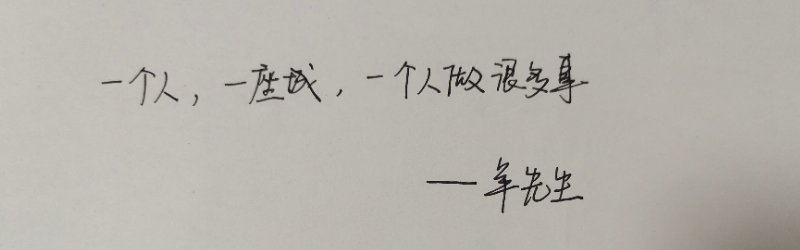 一个人，一座城，一个人做很多事
——羊先生